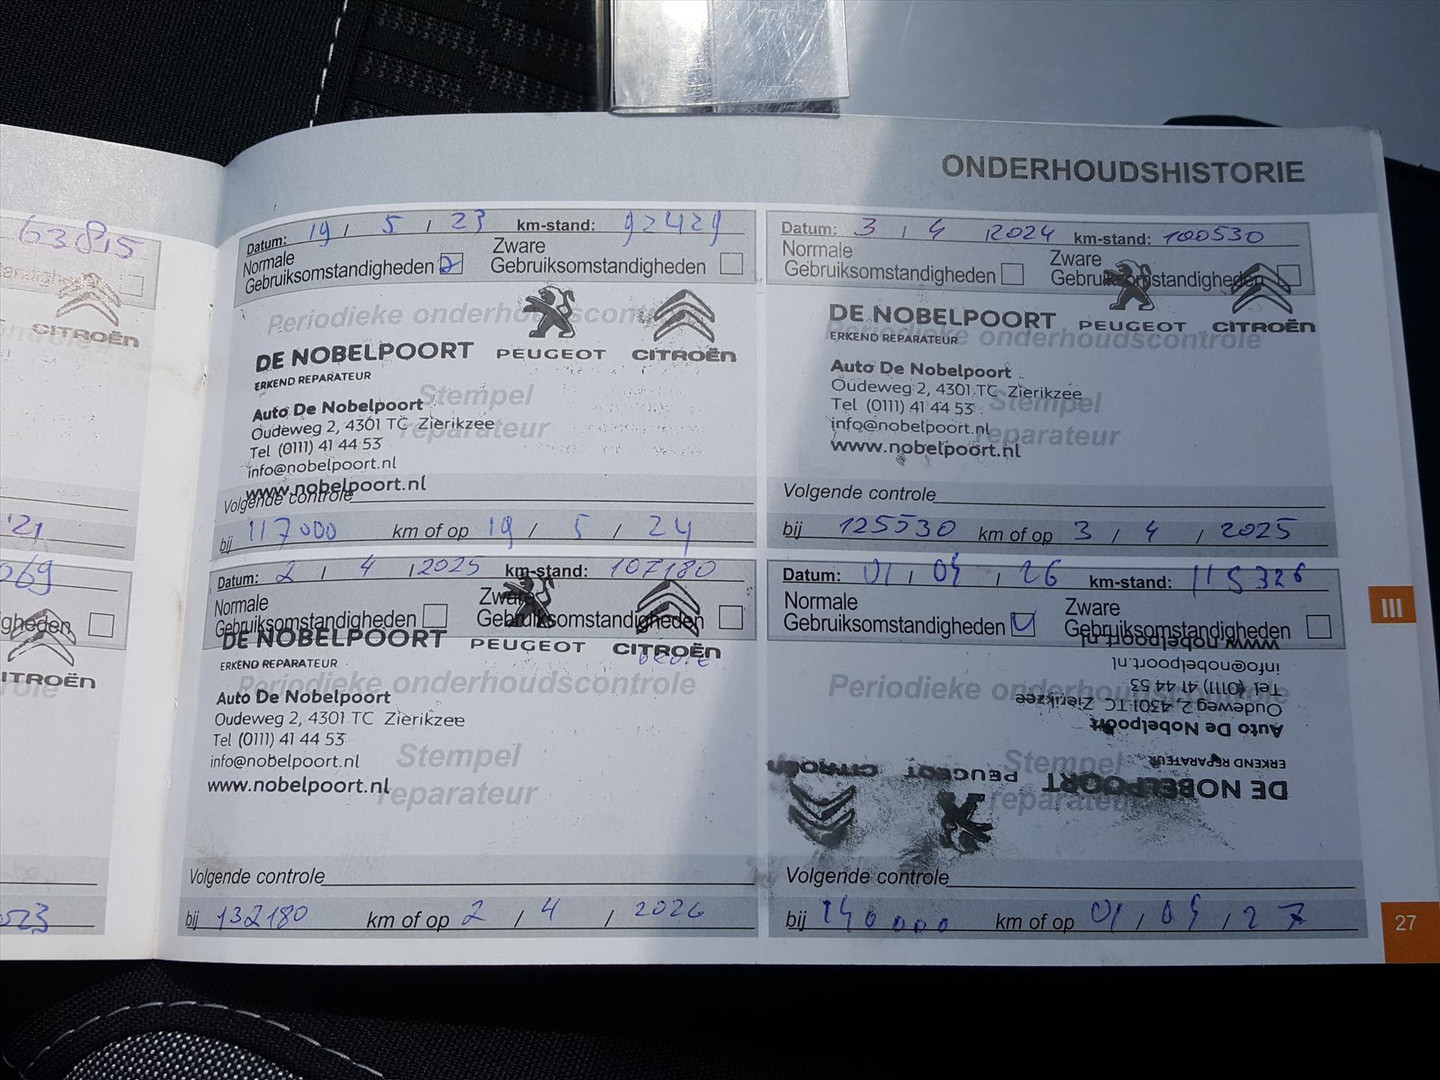 ONDERHOUDSHISTORIE
63815
CITROËN
'21
069
CITROËN
Datum: 19 / 5 / 23 km-stand: 92429
Normale Gebruiksomstandigheden Zware Gebruiksomstandigheden
Periodieke onderhoudscontrole
DE NOBELPOORT PEUGEOT CITROËN
ERKEND REPARATEUR
Stempel
Auto De Nobelpoort
Oudeweg 2, 4301 TC Zierikzee
reparateur
Tel (0111) 41 44 53
info@nobelpoort.nl
www.nobelpoort.nl
Volgende controle
bij 117000 km of op 19 / 5 / 24
Datum: 3 / 4 / 2024 km-stand: 100530
Normale Gebruiksomstandigheden Zware Gebruiksomstandigheden
DE NOBELPOORT PEUGEOT CITROËN
Periodieke onderhoudscontrole
ERKEND REPARATEUR
Auto De Nobelpoort
Oudeweg 2, 4301 TC Zierikzee
Stempel
Tel (0111) 41 44 53
info@nobelpoort.nl
reparateur
www.nobelpoort.nl
Volgende controle
bij 125530 km of op 3 / 4 / 2025
Datum: 2 / 4 / 2025 km-stand: 107180
Normale Gebruiksomstandigheden Zware Gebruiksomstandigheden
DE NOBELPOORT PEUGEOT CITROËN
ERKEND REPARATEUR
Periodieke onderhoudscontrole
Auto De Nobelpoort
Oudeweg 2, 4301 TC Zierikzee
Tel (0111) 41 44 53
Stempel
info@nobelpoort.nl
www.nobelpoort.nl
reparateur
Volgende controle
bij 132180 km of op 2 / 4 / 2026
Datum: 01 / 04 / 26 km-stand: 115326
Normale Gebruiksomstandigheden Zware Gebruiksomstandigheden
Periodieke onderhoudscontrole
Stempel
reparateur
DE NOBELPOORT PEUGEOT CITROËN
ERKEND REPARATEUR
Auto De Nobelpoort
Oudeweg 2, 4301 TC Zierikzee
Tel (0111) 41 44 53
info@nobelpoort.nl
www.nobelpoort.nl
Volgende controle
bij 140000 km of op 01 / 04 / 27
III
27